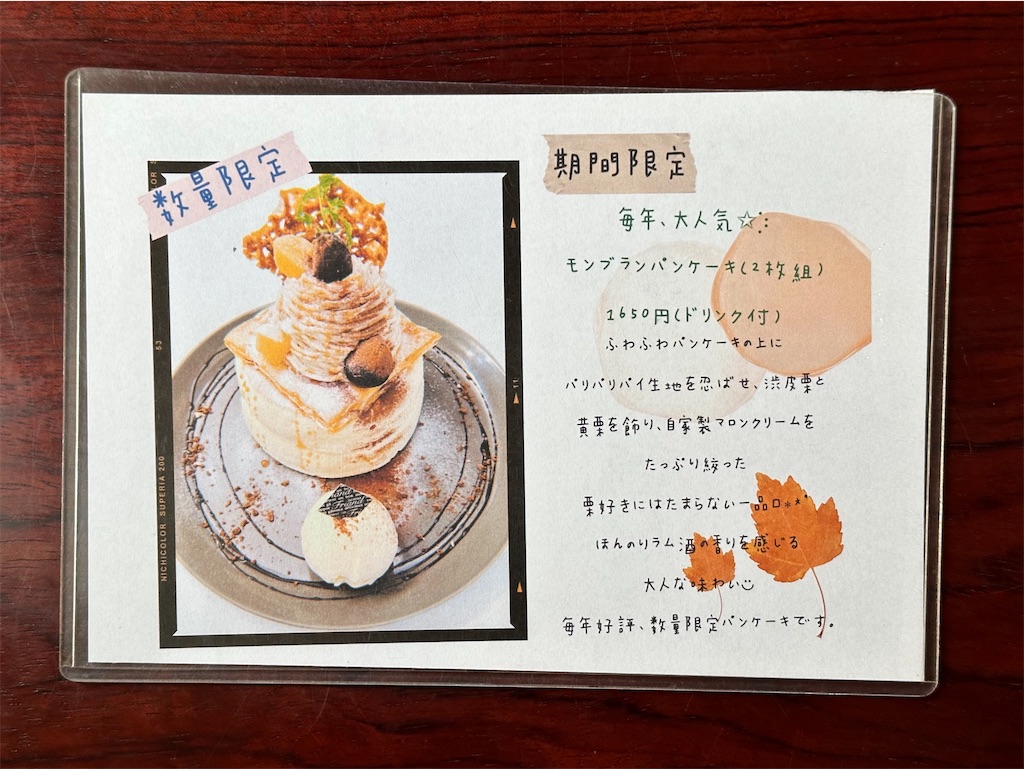 数量限定
期間限定
毎年、大人気☆
モンブランパンケーキ(2枚組)
1650円(ドリンク付)
ふわふわパンケーキの上に
パリパリパイ生地を忍ばせ、渋皮栗と
黄栗を飾り、自家製マロンクリームを
たっぷり絞った
栗好きにはたまらない一品ロ**
ほんのりラム酒の香りを感じる
大人な味わい
毎年好評、数量限定パンケーキです。
53
11
NICHICOLOR SUPERIA 200
Friend